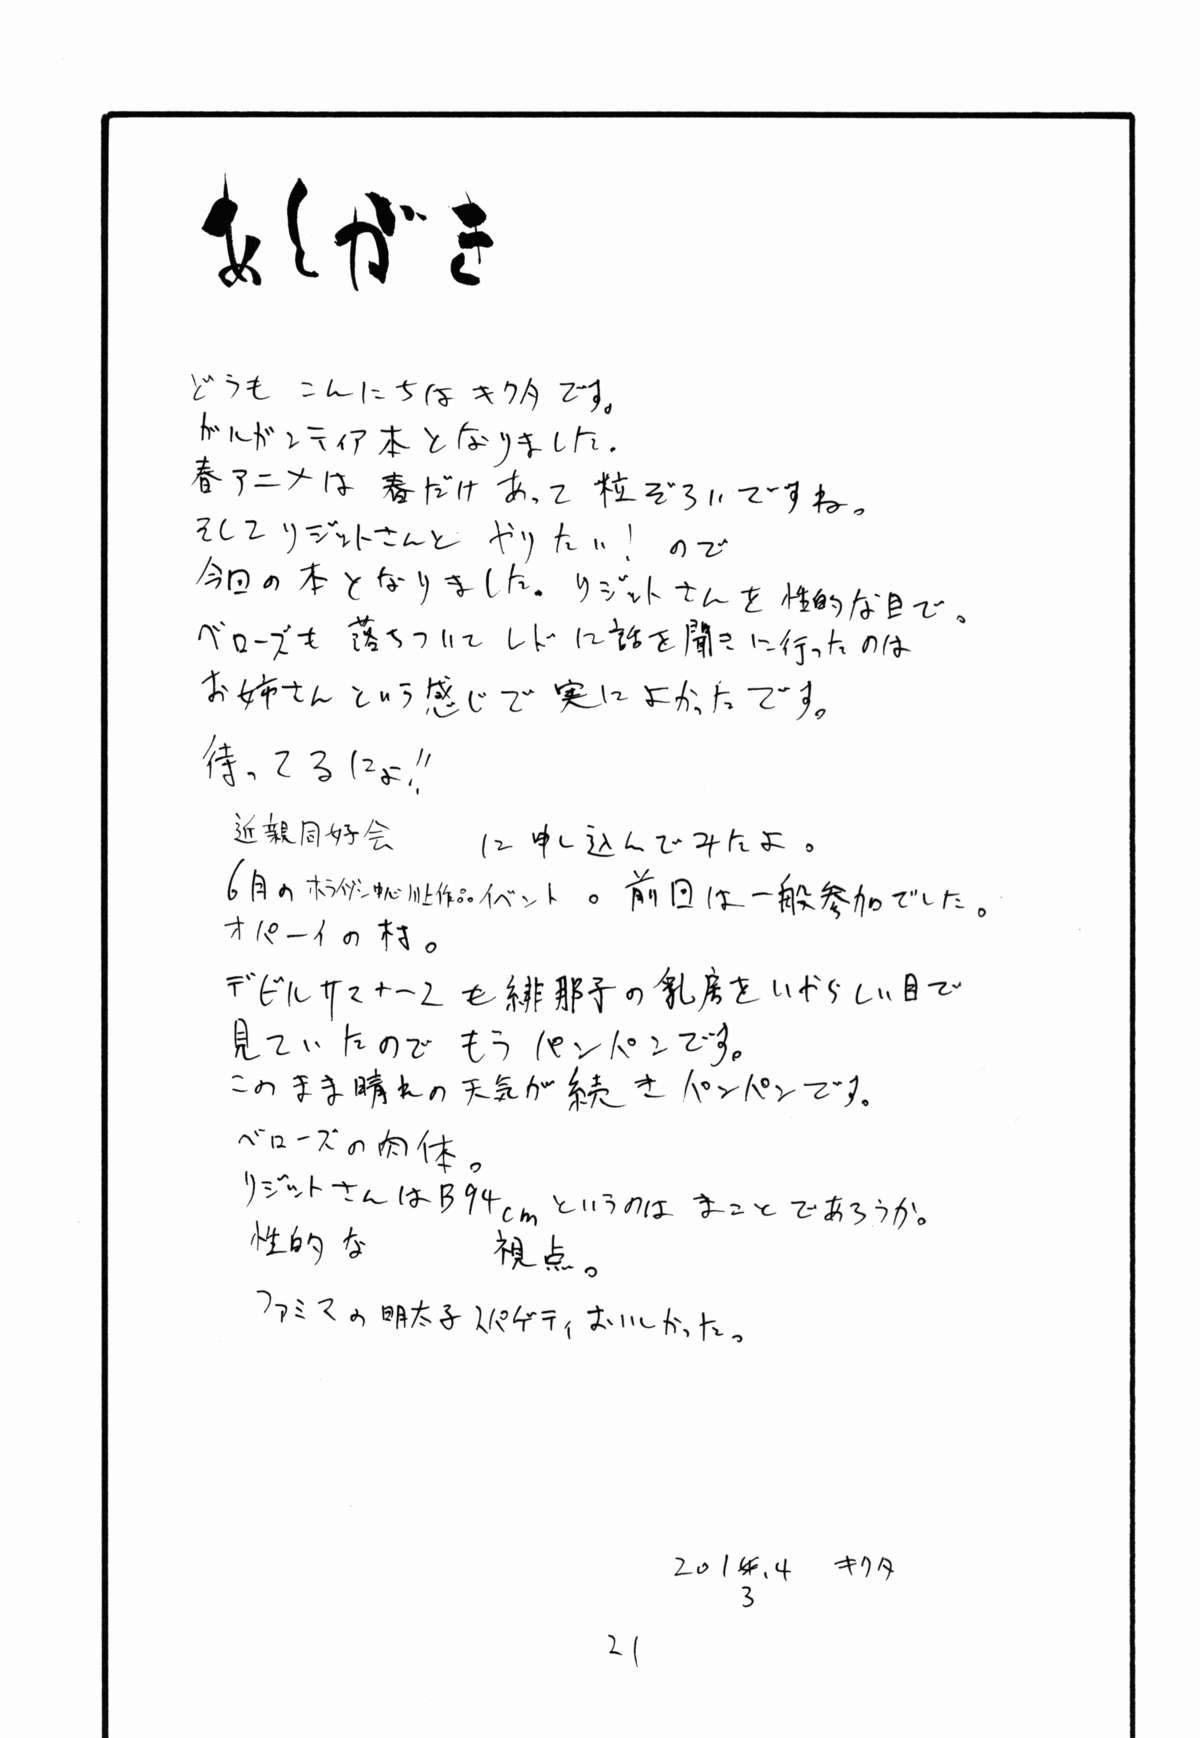 あとがき
どうも こんにちは キクタです。
ガルガンティア本となりました.
春アニメは 春だけあって 粒ぞろいですね。
そしてリジットさんと やりたい! ので
今回の本となりました. リジットさんを性的な目で。
ベローズも 落ちついてレドに話を聞きに行ったのは
お姉さんという感じで 実によかったです。
待ってるにょ!!
近親同好会 に申し込んでみたよ。
6月のホライゾン中心川上作品イベント。前回は一般参加でした。
オパーイの村。
デビルサマナー2も緋那子の乳房をいやらしい目で
見ていたので もう パンパンです。
このまま晴れの天気が続きパンパンです。
ベローズの肉体。
リジットさんはB94cmというのは まことであろうか。
性的な 視点。
ファミマの明太子スパゲティおいしかった。
201 .4 キクタ
3
21